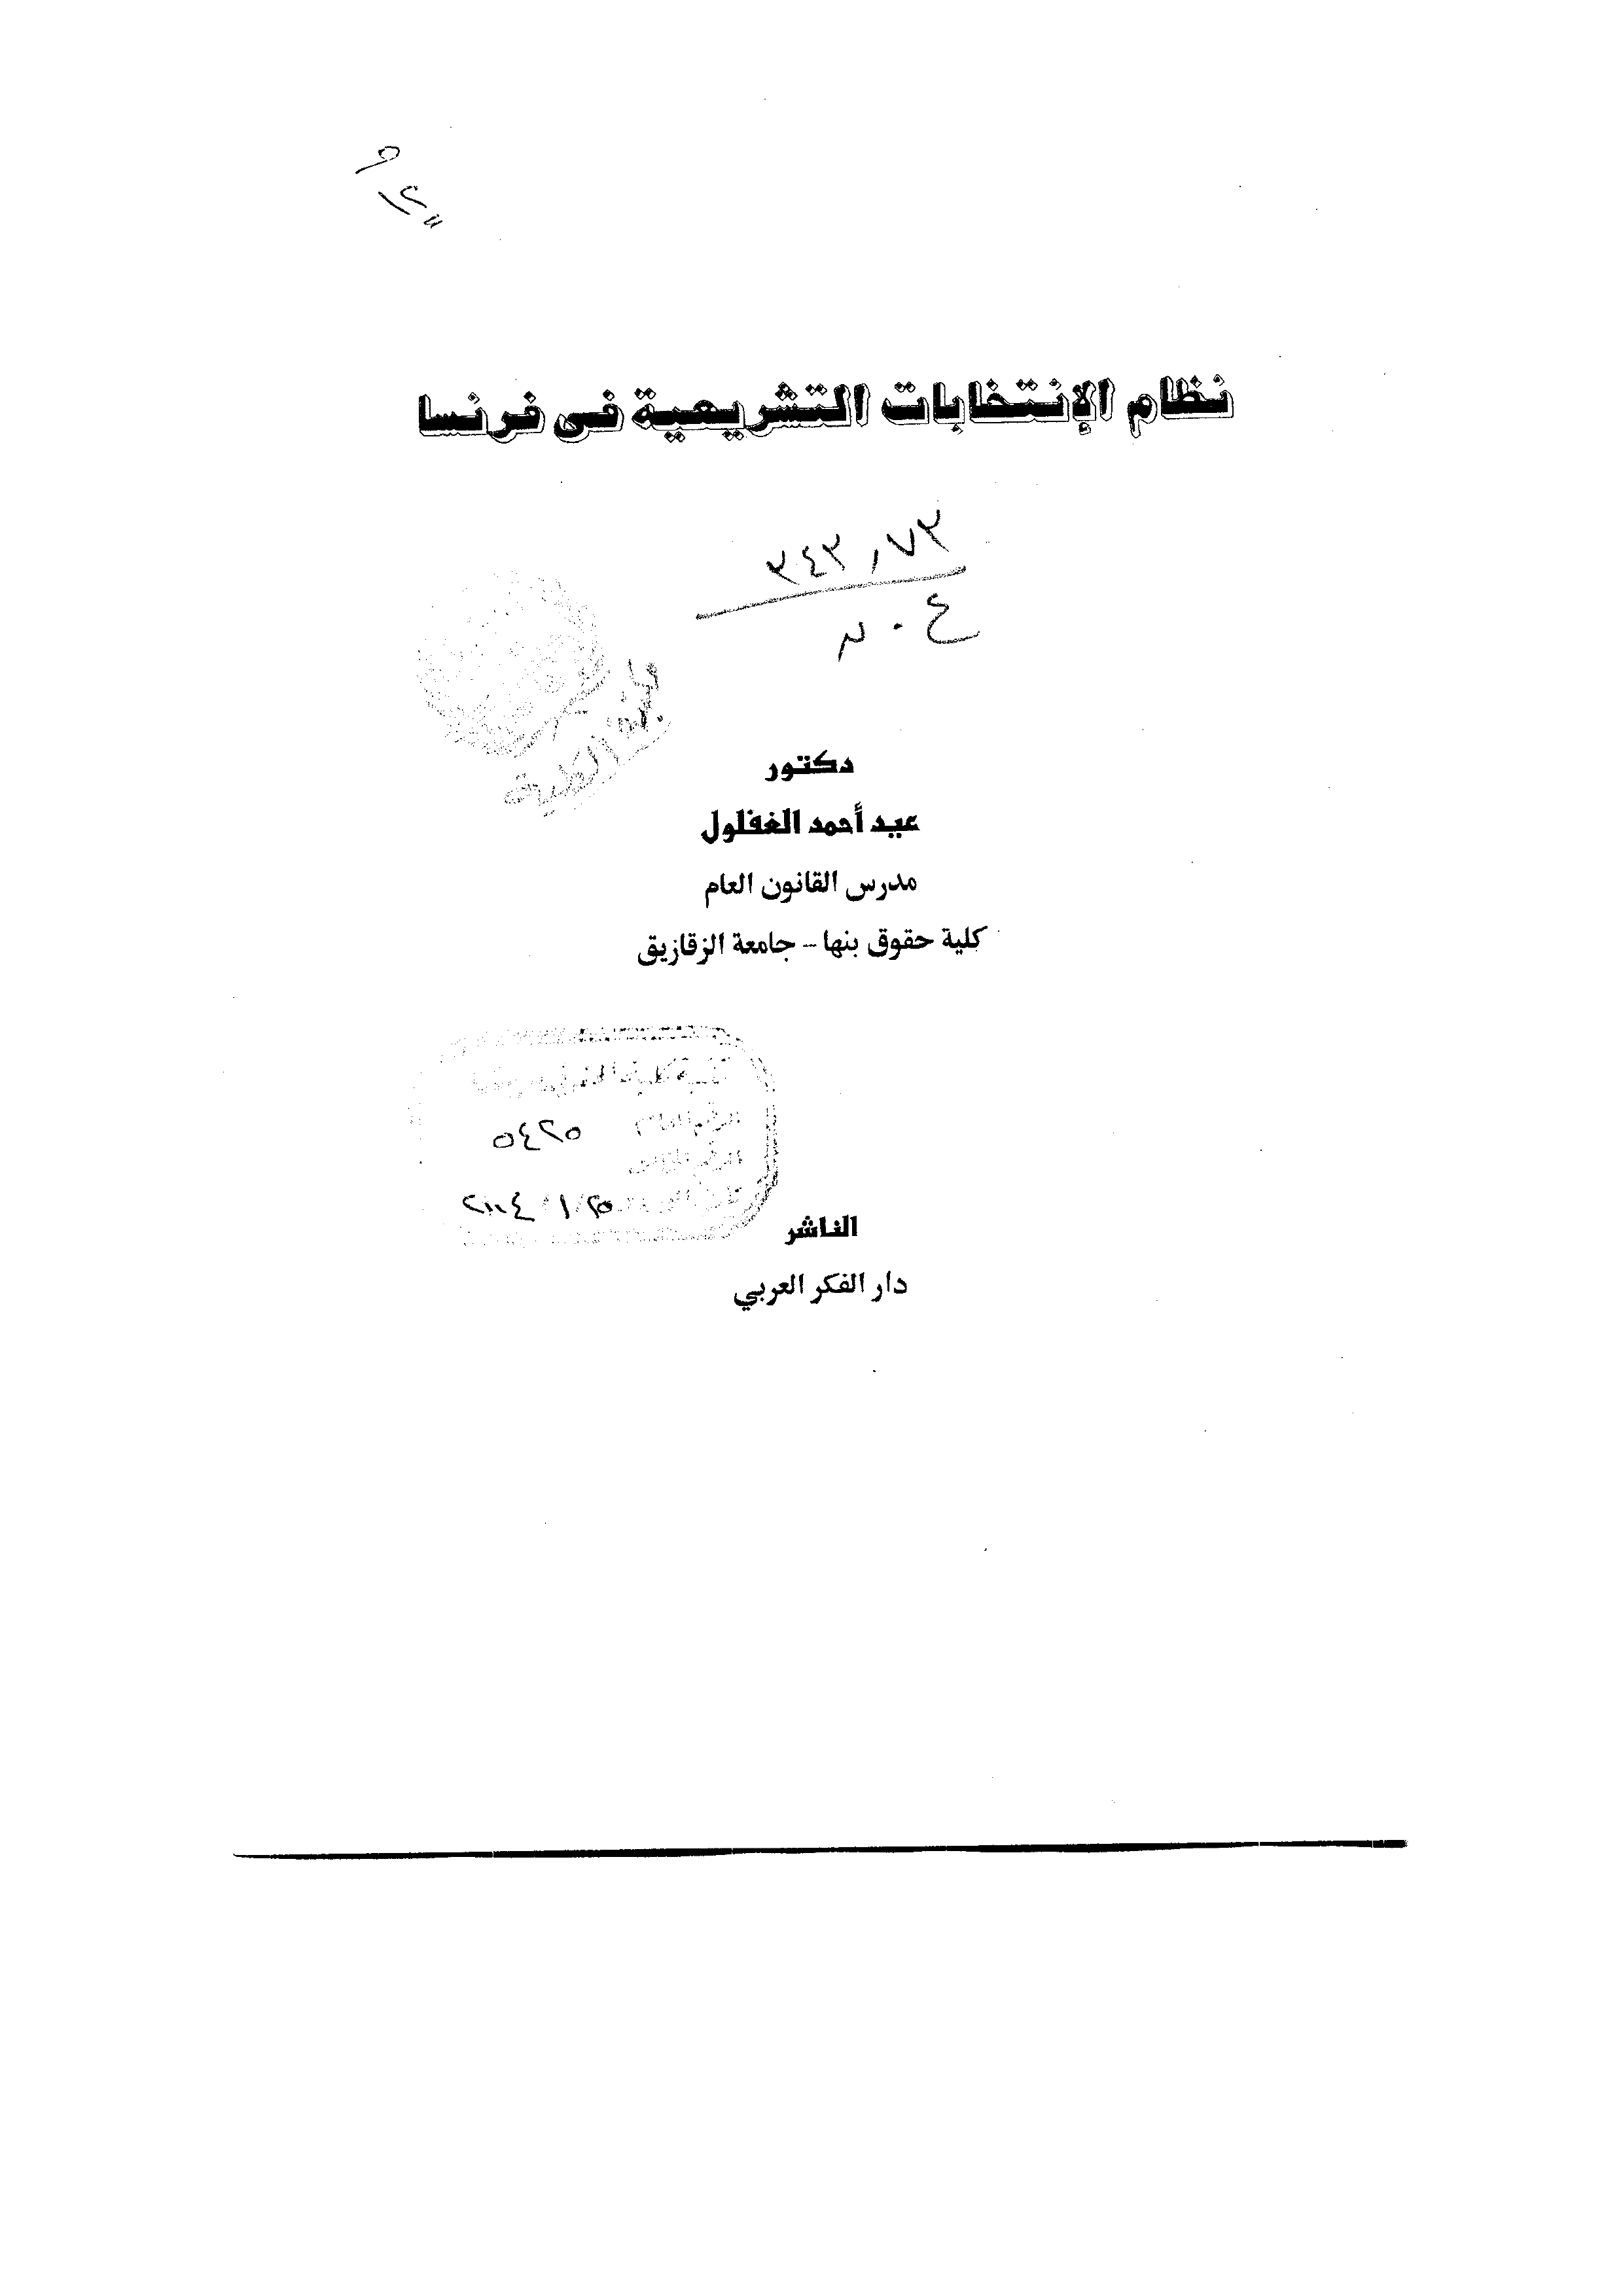 نظام الإنتخابات التشريعية فى فرنسا
٣٤٣,٧٣
ع . ن
دكتور
عيد أحمد الغفلول
مدرس القانون العام
كلية حقوق بنها - جامعة الزقازيق
٥٢٤٥
الناشر
دار الفكر العربي